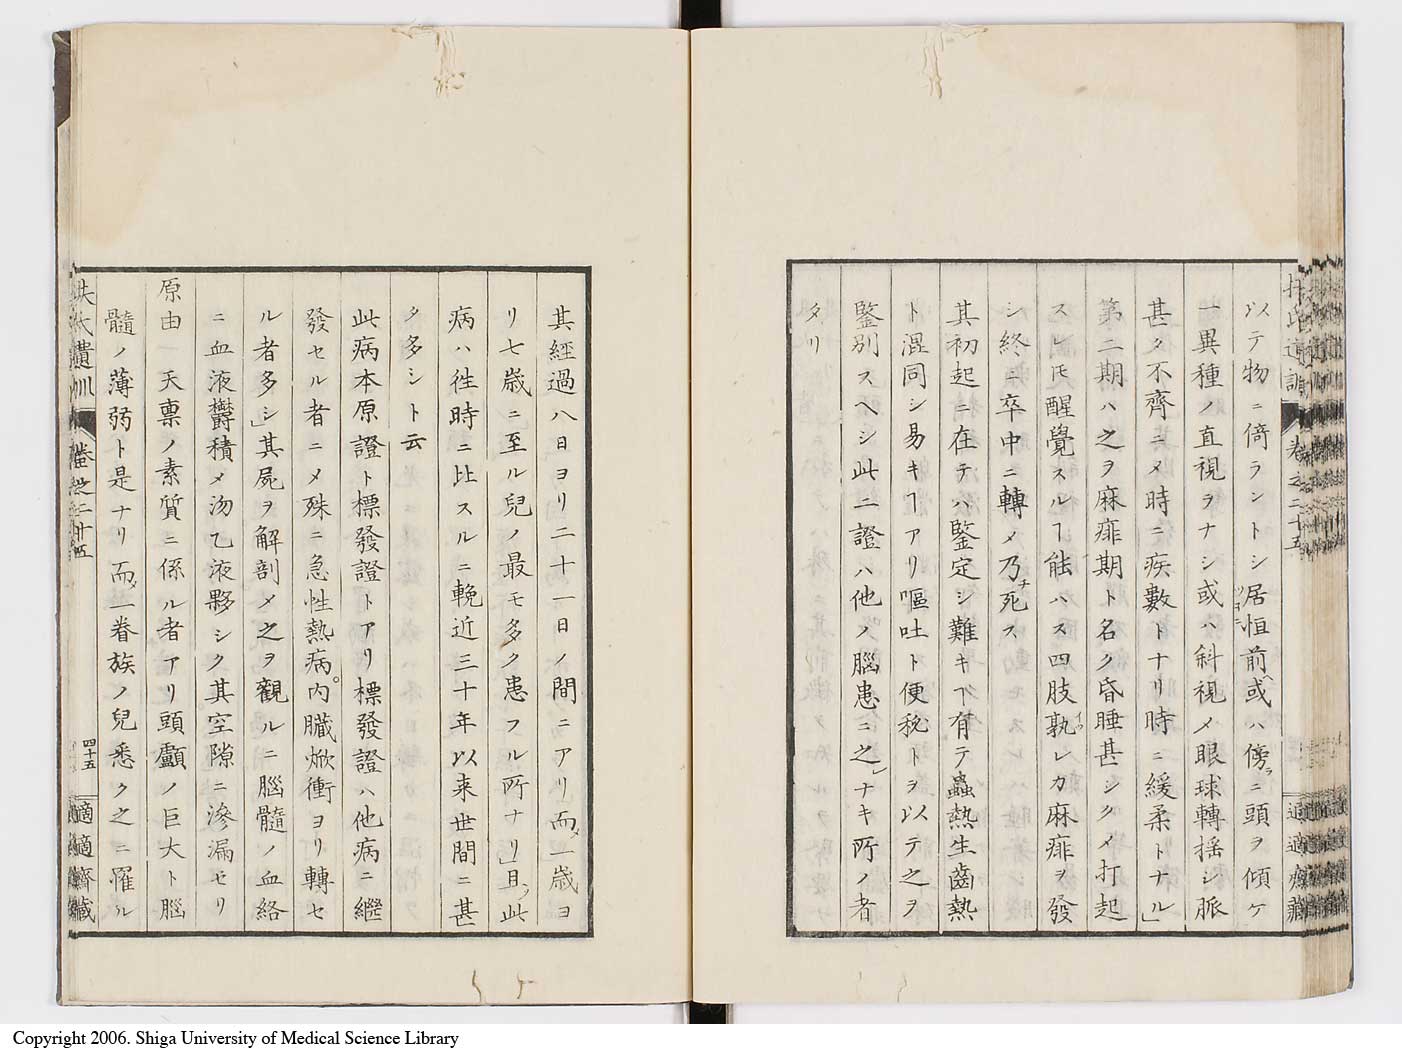 以テ物ニ倚ラントシ居恒前或ハ傍ニ頭ヲ傾ケ
一異種ノ直視ヲナシ或ハ斜視〆眼球轉揺シ脈
甚タ不齊ニ〆時ニ疾數トナリ時ニ緩柔トナル」
第二期ハ之ヲ麻痱期ト名ク昏睡甚シク〆打起
スレ𪜈醒覺スルヿ能ハス四肢孰レカ麻痱ヲ發
シ終ニ卒中ニ轉〆乃チ死ス
其初起ニ在テハ鑒定シ難キヿ有テ蟲熱生齒熱
ト混同シ易キヿアリ嘔吐ト便秘トヲ以テ之ヲ
鑒別スヘシ此二證ハ他ノ腦患ニ之レナキ所ノ者
タリ
扶氏遺訓 卷之二十五 適適齋藏
其經過八日ヨリ二十一日ノ間ニアリ而〆一歳ヨ
リ七歳ニ至ル兒ノ最モ多ク患フル所ナリ」且ツ此
病ハ徃時ニ比スルニ輓近三十年以来世間ニ甚
タ多シト云
此病本原證ト標發證トアリ標發證ハ他病ニ繼
發セル者ニ〆殊ニ急性熱病。内臓焮衝ヨリ轉セ
ル者多シ」其屍ヲ解剖〆之ヲ觀ルニ腦髓ノ血絡
ニ血液欝積〆沕乙液夥シク其空隙ニ滲漏セリ
原由 天禀ノ素質ニ係ル者アリ頭顱ノ巨大ト腦
髓ノ薄弱ト是ナリ而〆一眷族ノ兒悉ク之ニ罹ル
扶氏遺訓 卷之二十五 四十五 適適齋藏
Copyright 2006. Shiga University of Medical Science Library